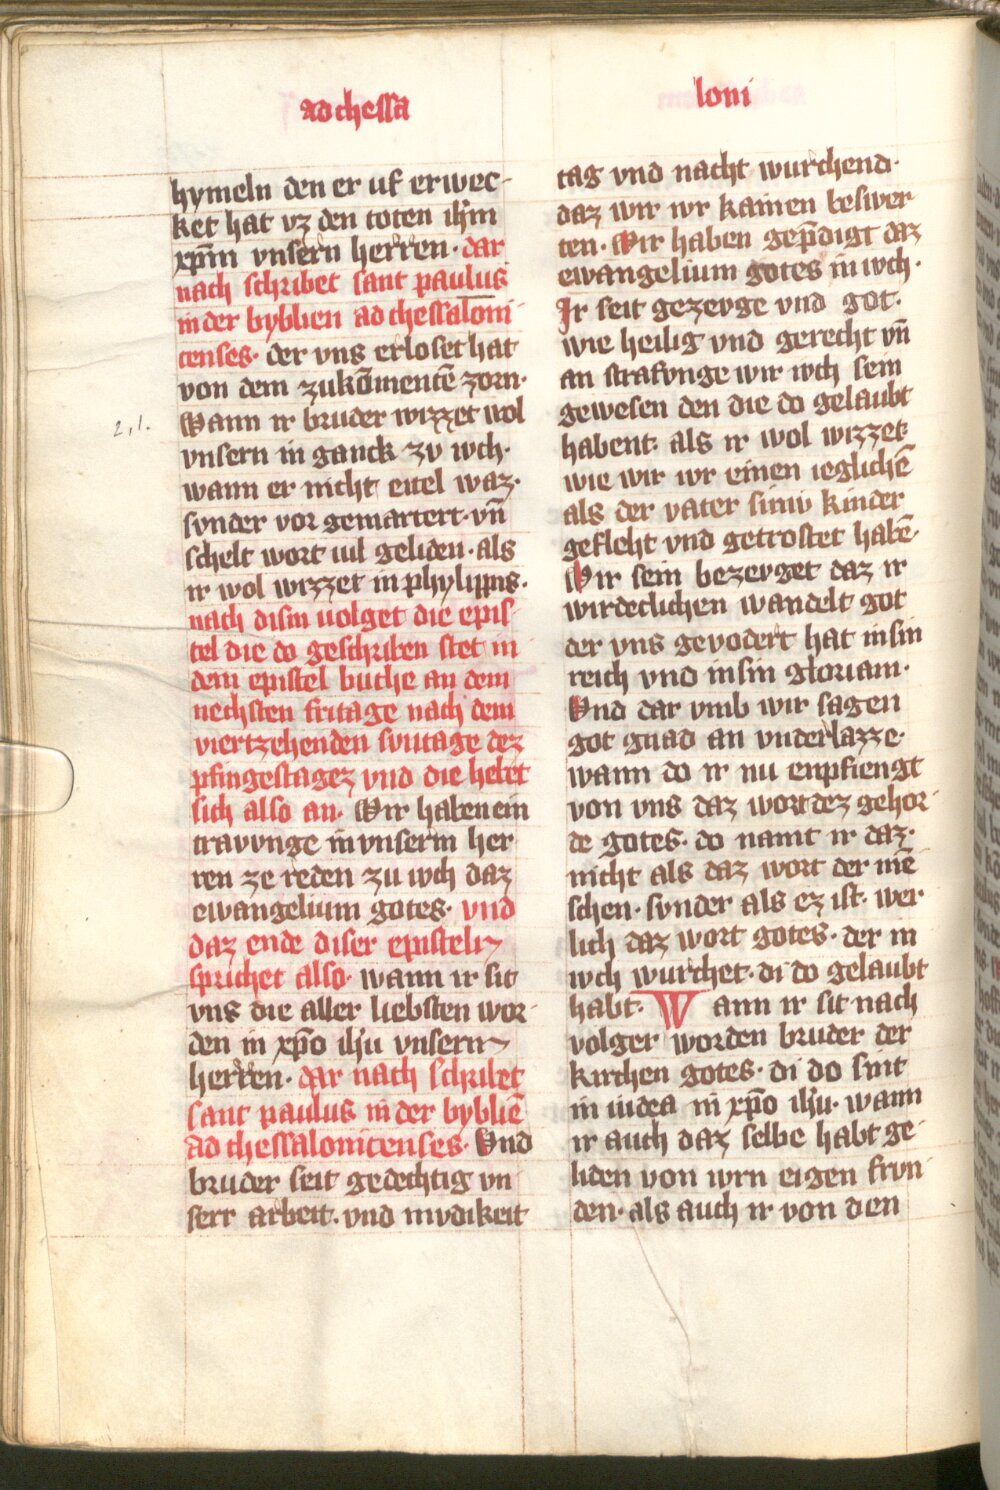 ad thessa
loni
hymeln den er uf erwec-
ket hat vz den toten ih̄m
xp̄m vnsern herren· dar
nach schribet sant paulus
in der bybłien ad thessaloni
censes· der vns erloset hat
von dem zukūmentē zorn·
Wann ir bruder wizzet wol
vnsern in ganck zv wch·
wann er nicht eitel waz·
synder vor gemartert· vn̄
schelt wort uil geliden· als
ir wol wizzet in phylippis·
nach dism uolget die epis
tel die do geschriben stet in
dem epistel buche an dem
nechsten fritage nach dem
viertzehenden svntage dez
pfingestagez vnd die hebet
sich also an· Wir haben ein
travvnge in vnserm her
ren ze reden zu wch daz
ewangelium gotes· vnd
daz ende diser episteln
sprichet also· wann ir sit
vns die aller liebsten wor-
den in xp̄o ih̄u vnsern
herren· dar nach schribet
sant paulus in der bybliē
ad thessalonicenses· Vnd
bruder seit gedechtig vn
serr arbeit· vnd mvdikeit
2,1.
tag vnd nacht wurchend·
daz wir wr kainen beswer
ten· Wir haben gep̄digt daz
ewangelium gotes in wch·
Ir seit gezevge vnd got·
wie heilig vnd gerecht vn̄
an strafvnge wir wch sein
gewesen den die do gelaubt
habent· als ir wol wizzet
wie wir wr einen ieglichē
als der vater siniv kinder
gefleht vnd getrostet habē·
Wir sein bezevget daz ir
wirdeclichen wandelt got
der vns gevodert hat in sin
reich vnd in sin gloriam·
Vnd dar vmb wir sagen
got gnad an vnderlazze·
wann do ir nu enpfiengt
von vns daz wort dez gehor
de gotes· do namt ir daz·
nicht als daz wort der mē
schen· synder als ez ist· wer
lich daz wort gotes· der in
wch wurchet· di do gelaubt
habt· Wann ir sit nach
volger worden bruder der
kirchen gotes· di do sint
in iudea in xp̄o ih̄u· wann
ir auch daz selbe habt ge
liden von wrn eigen frvn
den· als auch ir von den